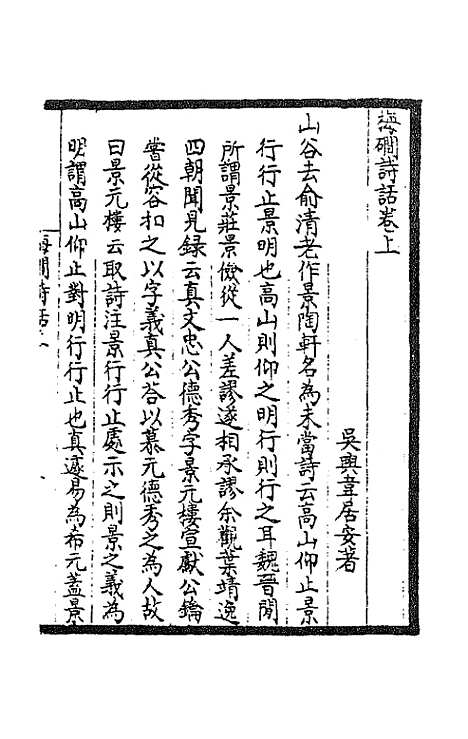 梅磵詩話卷上
吳興韋居安著
山谷去俞清老作景陶軒名為未當詩云高山仰止景
行行止景明也高山則仰之明行則行之耳魏晉閒
所謂景莊景儉從一人差謬遂相承謬余觀葉靖逸
四朝聞見録云真文忠公德秀字景元樓宣獻公鑰
嘗從容扣之以字義真公荅以慕元德秀之為人故
曰景元樓云取詩注景行行止處示之則景之義為
明謂高山仰止對明行行止也真遂易為希元蓋景
梅磵詩話上